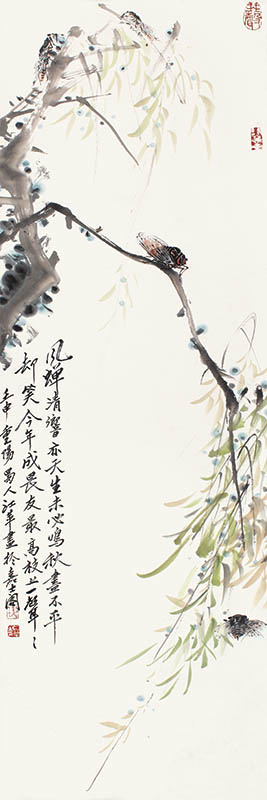 风蝉清响亦天生未必鸣秋尽不平
却笑今年成畏友最高枝上一声声
壬申重阳蜀人江年画於嘉士图